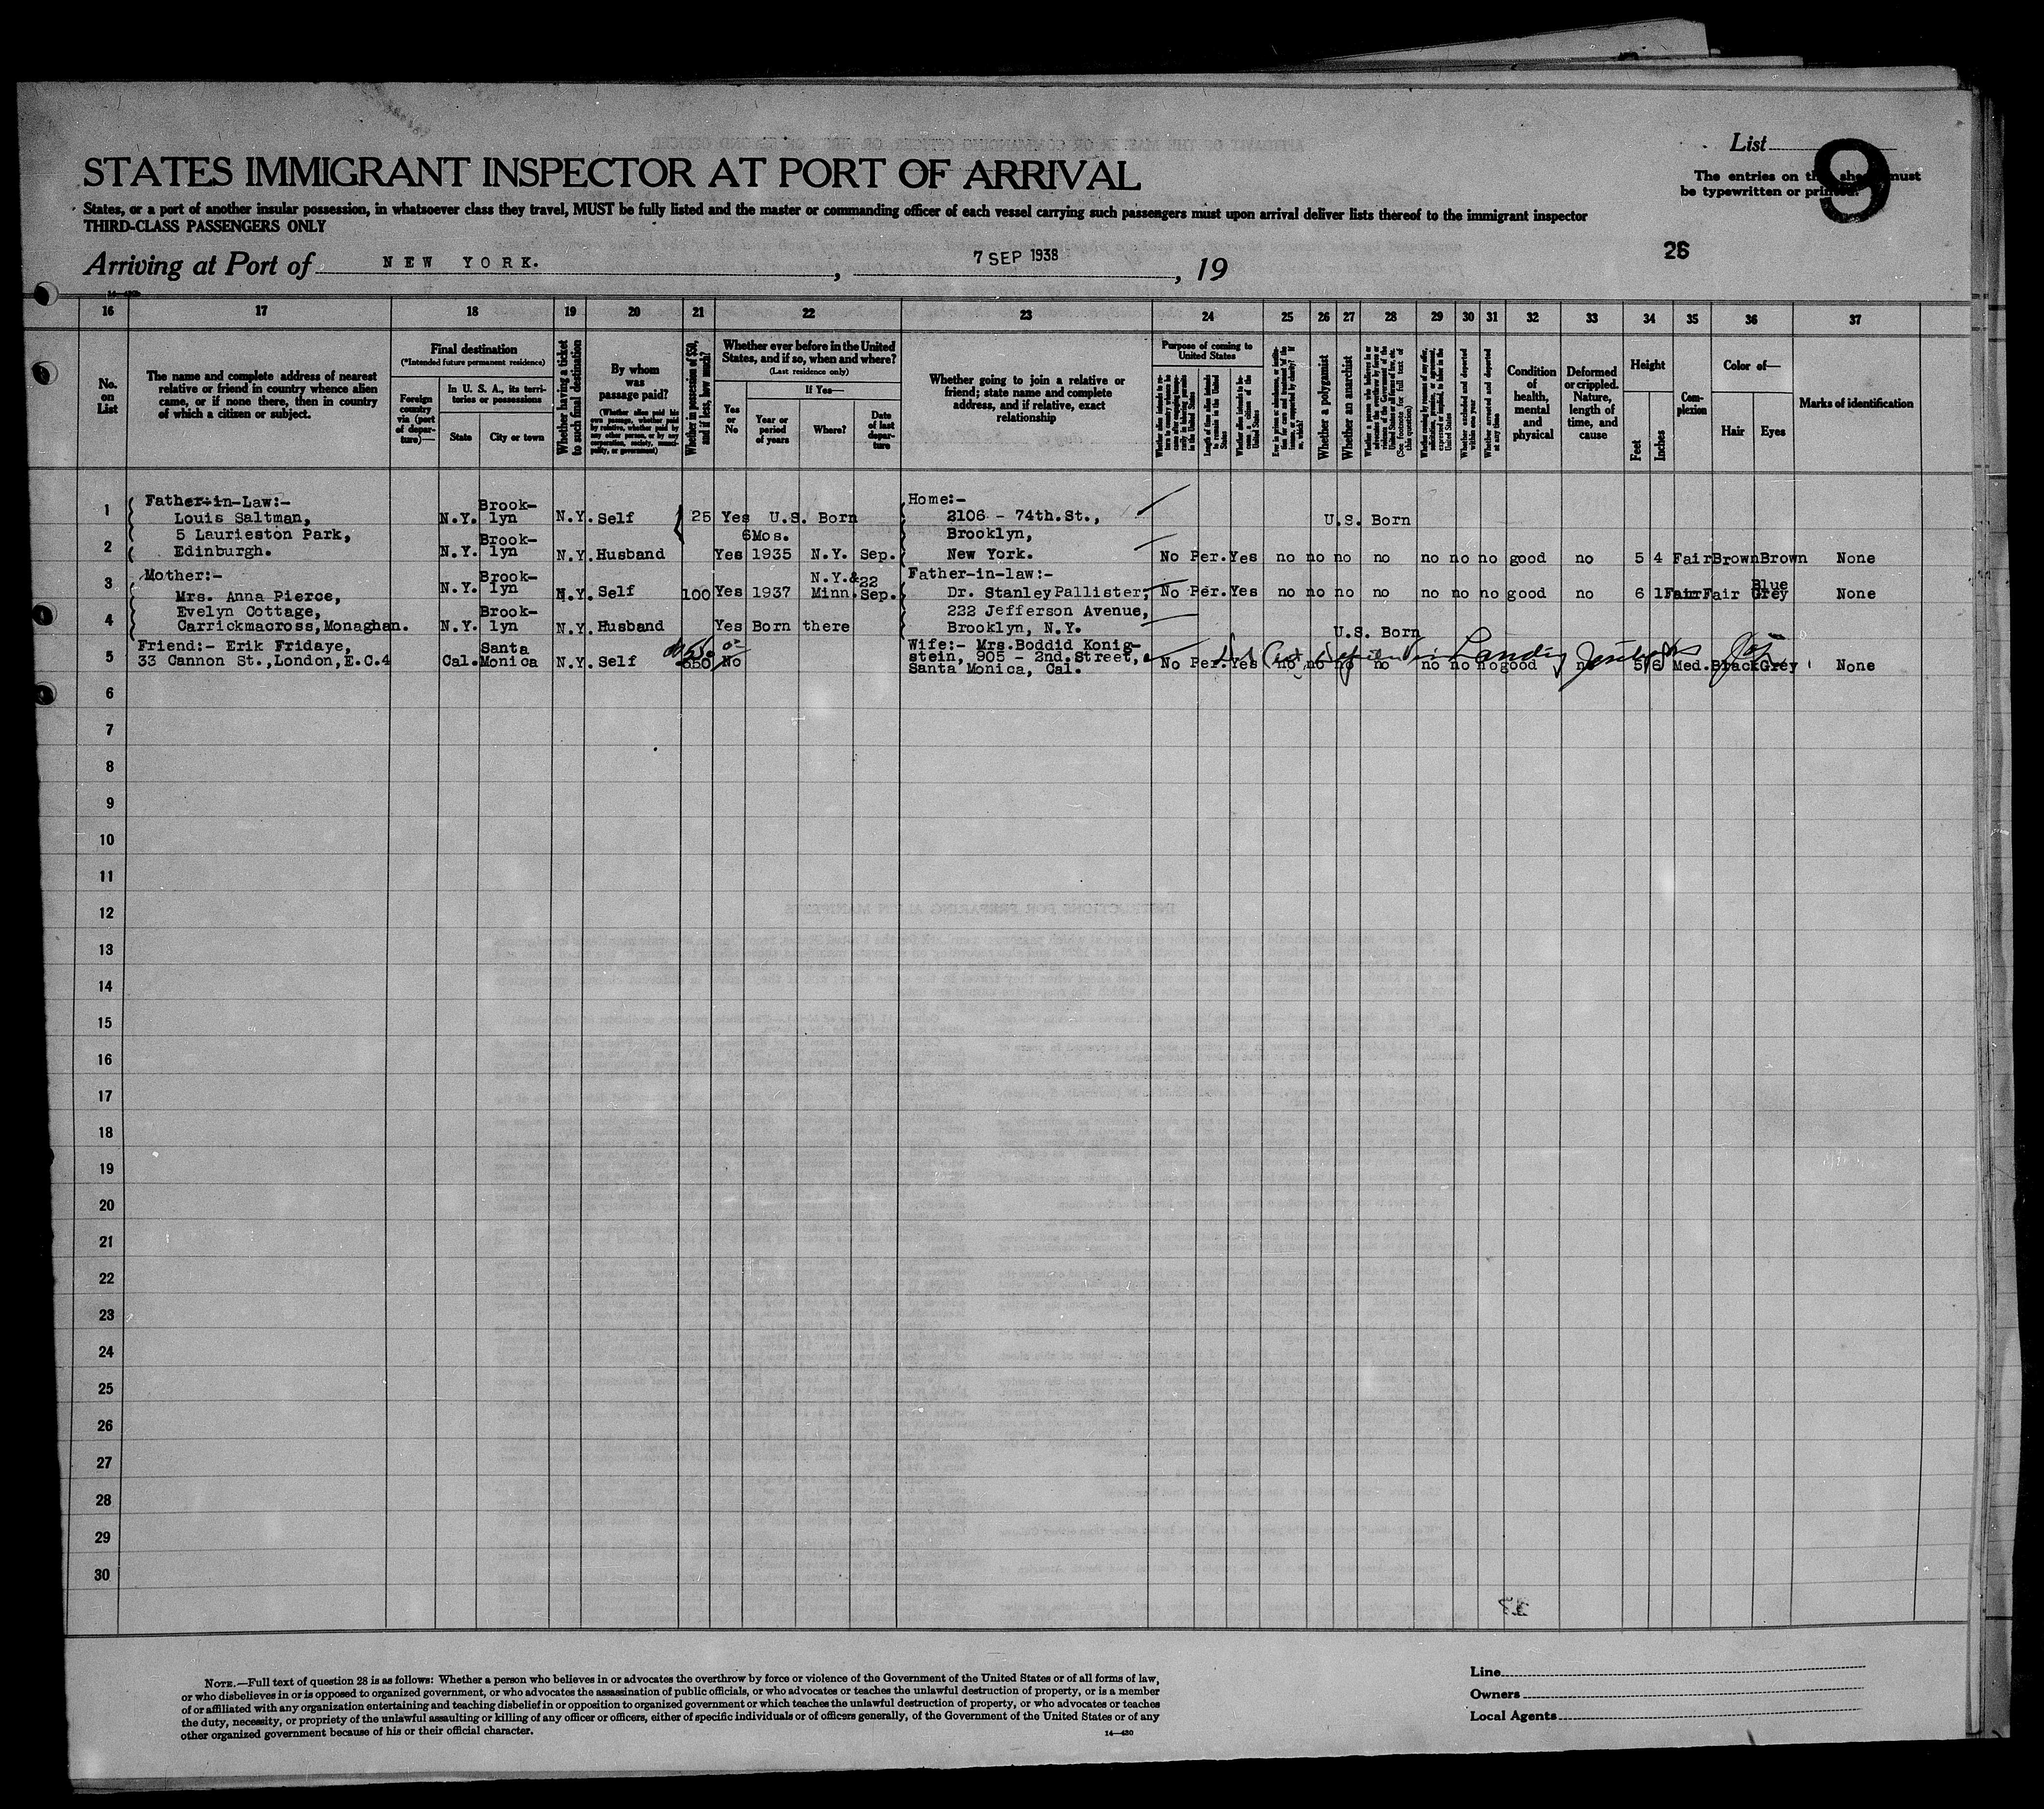 List
9
The entries on this sheet must
be typewritten or printed.
STATES IMMIGRANT INSPECTOR AT PORT OF ARRIVAL
States, or a port of another insular possession, in whatsoever class they travel, MUST be fully listed and the master or commanding officer of each vessel carrying such passengers must upon arrival deliver lists thereof to the immigrant inspector
THIRD-CLASS PASSENGERS ONLY
26
Arriving at Port of NEW YORK. , 7 SEP 1938 , 19
16 17 18 19 20 21 22 23 24 25 26 27 28 29 30 31 32 33 34 35 36 37
No. on List
The name and complete address of nearest relative or friend in country whence alien came, or if none there, then in country of which a citizen or subject.
Final destination
(*Intended future permanent residence)
Foreign country via (port of departure)—
In U. S. A., its territories or possessions
State
City or town
Whether having a ticket to such final destination
By whom was passage paid?
(Whether alien paid his own passage, whether paid by relative, whether paid by any other person, or by any corporation, society, municipality, or government)
Whether in possession of $50, and if less, how much?
Whether ever before in the United States, and if so, when and where?
(Last residence only)
Yes or No
If Yes—
Year or period of years
Where?
Date of last departure
Whether going to join a relative or friend; state name and complete address, and if relative, exact relationship
Purpose of coming to United States
Length of time alien intends to remain in the United States
Whether alien intends to become a citizen of the United States
Whether a polygamist
Whether an anarchist
(See footnote for full text of this question)
Whether excluded and deported within one year
Whether arrested and deported at any time
Condition of health, mental and physical
Deformed or crippled. Nature, length of time, and cause
Height
Feet
Inches
Complexion
Color of—
Hair
Eyes
Marks of identification
1 Father-in-Law:- Brook- Home:-
Louis Saltman, N.Y. lyn N.Y. Self 25 Yes U.S. Born 2106 - 74th.St., U.S. Born
5 Laurieston Park, Brook- 6Mos. Brooklyn,
2 Edinburgh. N.Y. lyn N.Y. Husband Yes 1935 N.Y. Sep. New York. No Per. Yes no no no no no no no good no 5 4 Fair Brown Brown None
3 Mother:- Brook- N.Y.& 22 Father-in-law:- Blue
Mrs. Anna Pierce, N.Y. lyn N.Y. Self 100 Yes 1937 Minn. Sep. Dr. Stanley Pallister, No Per. Yes no no no no no no no good no 6 1 Fair Fair Grey None
Evelyn Cottage, Brook- 222 Jefferson Avenue,
4 Carrickmacross, Monaghan. N.Y. lyn N.Y. Husband Yes Born there Brooklyn, N.Y. U.S. Born
5 Friend:- Erik Fridaye, Santa Wife:- Mrs.Boddid Konig-
33 Cannon St., London, E.C.4 Cal. Monica N.Y. Self 550 No stein, 905 - 2nd. Street, No Per. Yes no no no no no no no good no 5 6 Med. Black Grey None
Santa Monica, Cal.
6
7
8
9
10
11
12
13
14
15
16
17
18
19
20
21
22
23
24
25
26
27
28
29
30
NOTE.—Full text of question 28 is as follows: Whether a person who believes in or advocates the overthrow by force or violence of the Government of the United States or of all forms of law,
or who disbelieves in or is opposed to organized government, or who advocates the assassination of public officials, or who advocates or teaches the unlawful destruction of property, or is a member
of or affiliated with any organization entertaining and teaching disbelief in or opposition to organized government or which teaches the unlawful destruction of property, or who advocates or teaches
the duty, necessity, or propriety of the unlawful assaulting or killing of any officer or officers, either of specific individuals or of officers generally, of the Government of the United States or of any
other organized government because of his or their official character.
14—430
Line
Owners
Local Agents